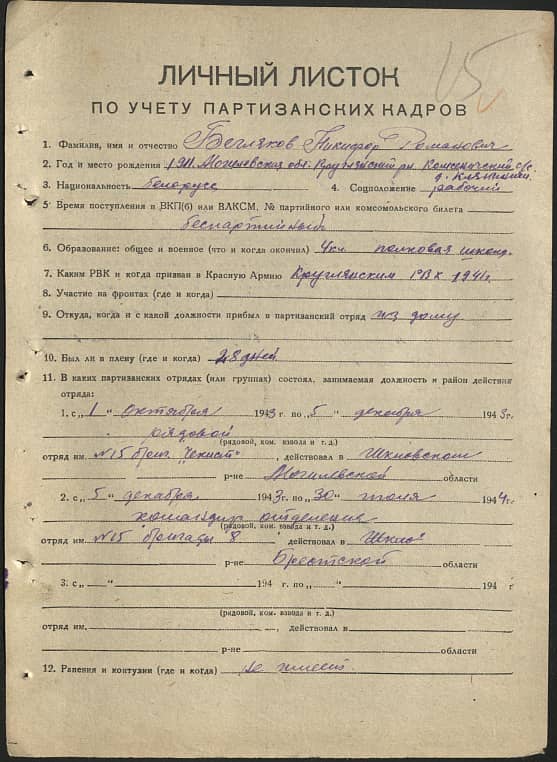 15
ЛИЧНЫЙ ЛИСТОК
ПО УЧЕТУ ПАРТИЗАНСКИХ КАДРОВ
1. Фамилия, имя и отчество Бегляков Никифор Романович
2. Год и место рождения 1911 Могилевская обл. Круглянский рн с/с
д.
3. Национальность белорусс 4. Соцположение рабочий
5. Время поступления в ВКП(б) или ВЛКСМ, № партийного или комсомольского билета
беспартийный
6. Образование: общее и военное (что и когда окончил) 4 кл. полковая школа.
7. Каким РВК и когда призван в Красную Армию Круглянским РВК 1941г.
8. Участие на фронтах (где и когда)
9. Откуда, когда и с какой должности прибыл в партизанский отряд из дому
10. Был ли в плену (где и когда) 28 дней
11. В каких партизанских отрядах (или группах) состоял, занимаемая должность и район действия
отряда:
1. с „1" октября 1943 г. по „5" декабря 1943 г.
рядовой
(рядовой, ком. взвода и т. д.)
отряд им. №15 бриг. "Чекист" действовал в Шкловском
р-не Могилевской области
2. с „5" декабря 1943 г. по „30" июля 1944 г.
командир отделения
(рядовой, ком. взвода и т. д.)
отряд им. №15 бригады 8 действовал в
р-не Брестской области
3. с „ " 194 г. по „ " 194 г.
(рядовой, ком. взвода и т. д.)
отряд им. , действовал в
р-не области
12. Ранения и контузии (где и когда) не имеет.